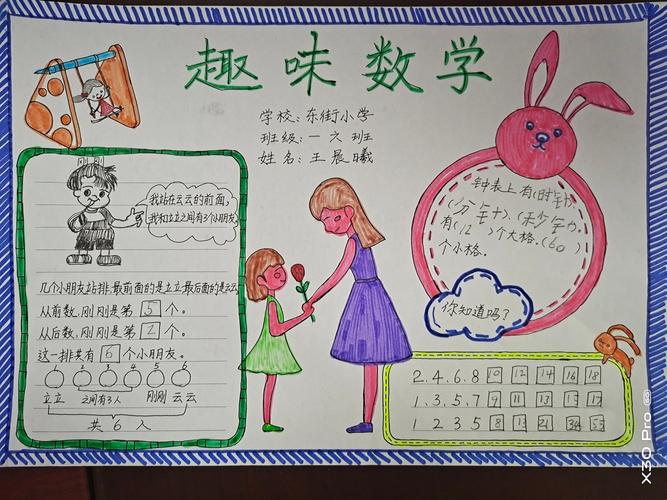 趣味数学
学校：东街小学
班级：一六班
姓名：王晨曦
我站在云云的前面，
我和立立之间有3个小朋友
几个小朋友站排，最前面的是立立，最后面的是云云
从前数，刚刚是第5个。
从后数，刚刚是第2个。
这一排共有6个小朋友。
1 2 3 4 5 6
立立 之间有3人 刚刚 云云
共6人
钟表上有(时针)
(分针)、(秒针)，
有(12)个大格，(60)
个小格。
你知道吗？
2.4.6.8 10 12 14 16 18
1.3.5.7 9 11 13 15 17
1 2 3 5 8 13 21 34 55
X30 Pro